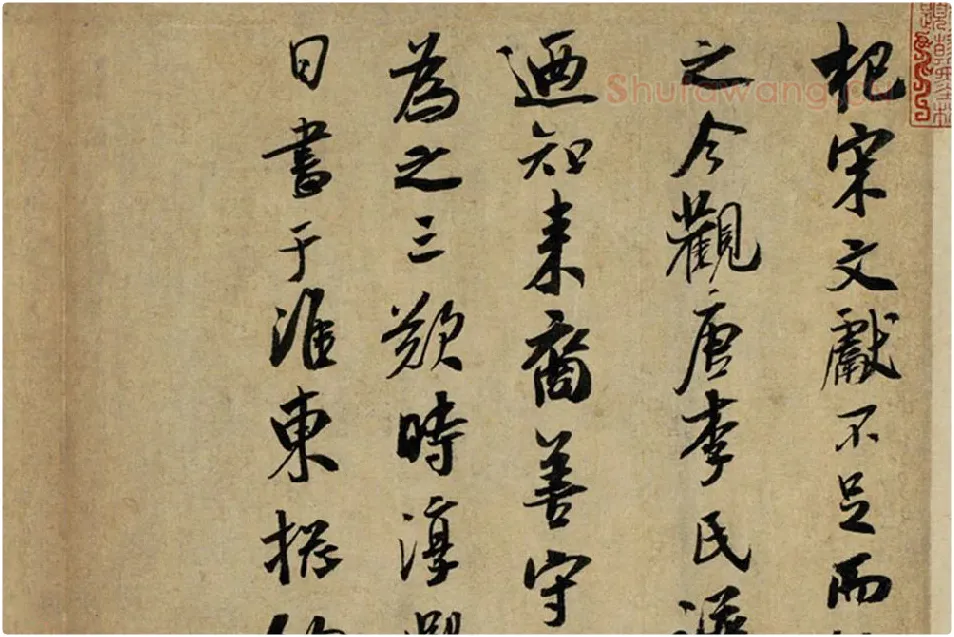 杞宋文獻不足而
之今觀唐李氏
迺知来裔善守
為之三歎時淳
日書于淮東
Shufawang.